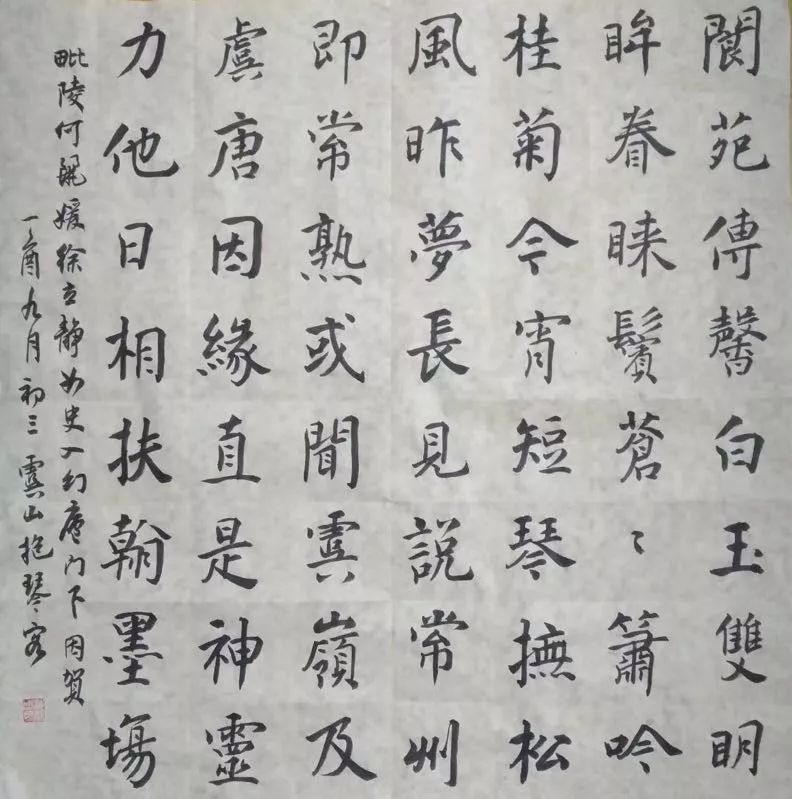 閬苑傳馨白玉雙明
眸眷睞鬢蒼〻簫吟
桂菊今宵短琴撫松
風昨夢長見說常州
即常熟或聞虞嶺及
虞唐因緣直是神靈
力他日相扶翰墨場
毗陵何麗媛徐立靜女史入幻廬门下因賀
丁酉九月初三虞山抱琴客